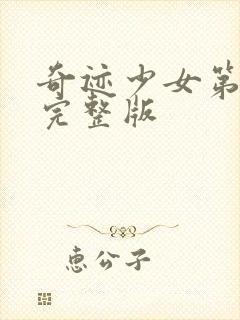 奇迹少女第
完整版
惠公子